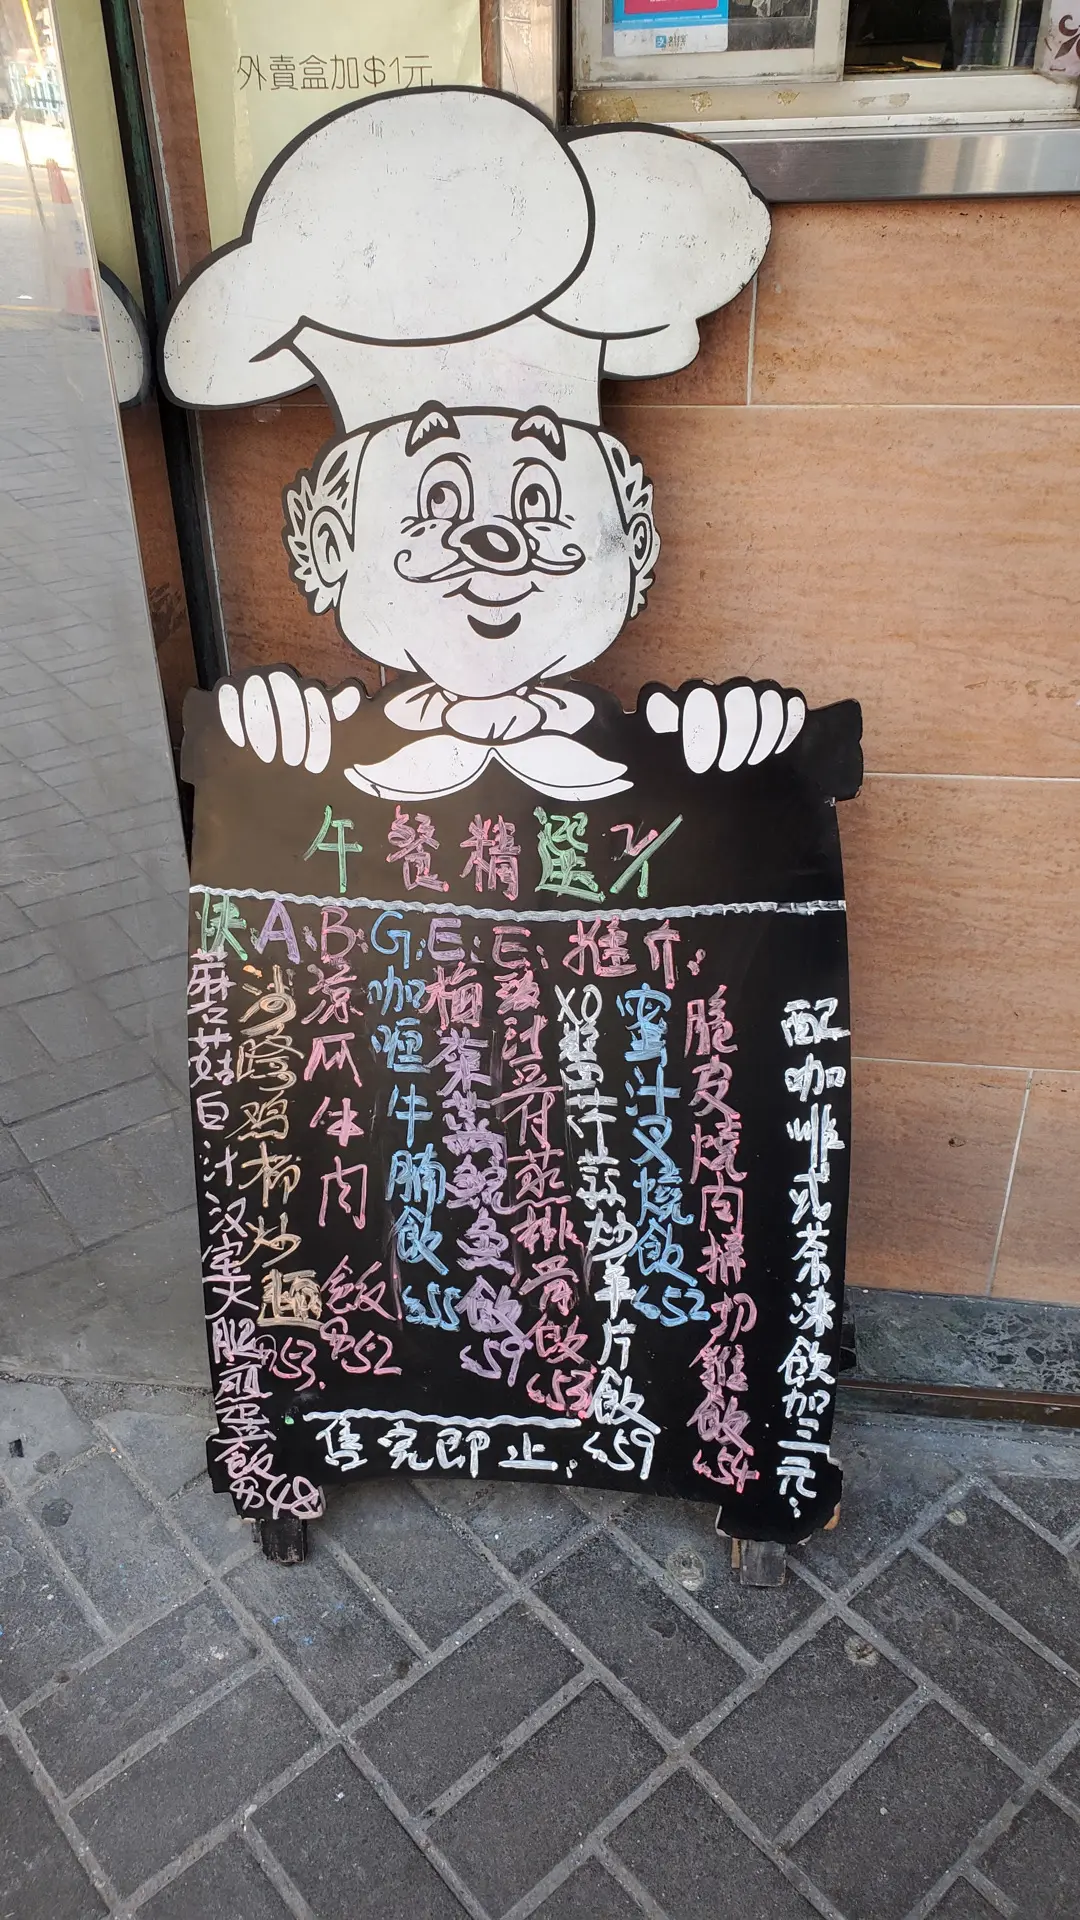 外賣盒加$1元
午餐精選
快 A: B: G: E: E: 推介:
蘑菇白汁汉宝天肥煎蛋飯 48
沙爹鸡柳炒麵 53.
凉瓜牛肉飯 $52
咖喱牛腩飯 55
梅菜蒸鯇魚飯 59
豉汁豆付蒸排骨飯 53
XO醬芥蘇炒羊片飯 59
蜜汁叉燒飯 52
脆皮燒肉拼切雞飯 54
配咖啡或茶凍飲加三元:
售完即止.